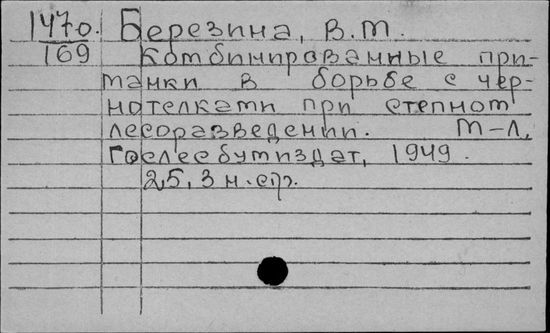 1470. Березина, В.М.
169 Комбинированные при-
манки в борьбе с чер-
нотелками при степном
лесоразведении. М-Л,
Гослесбумиздат, 1949.
25, 3 н.стр.